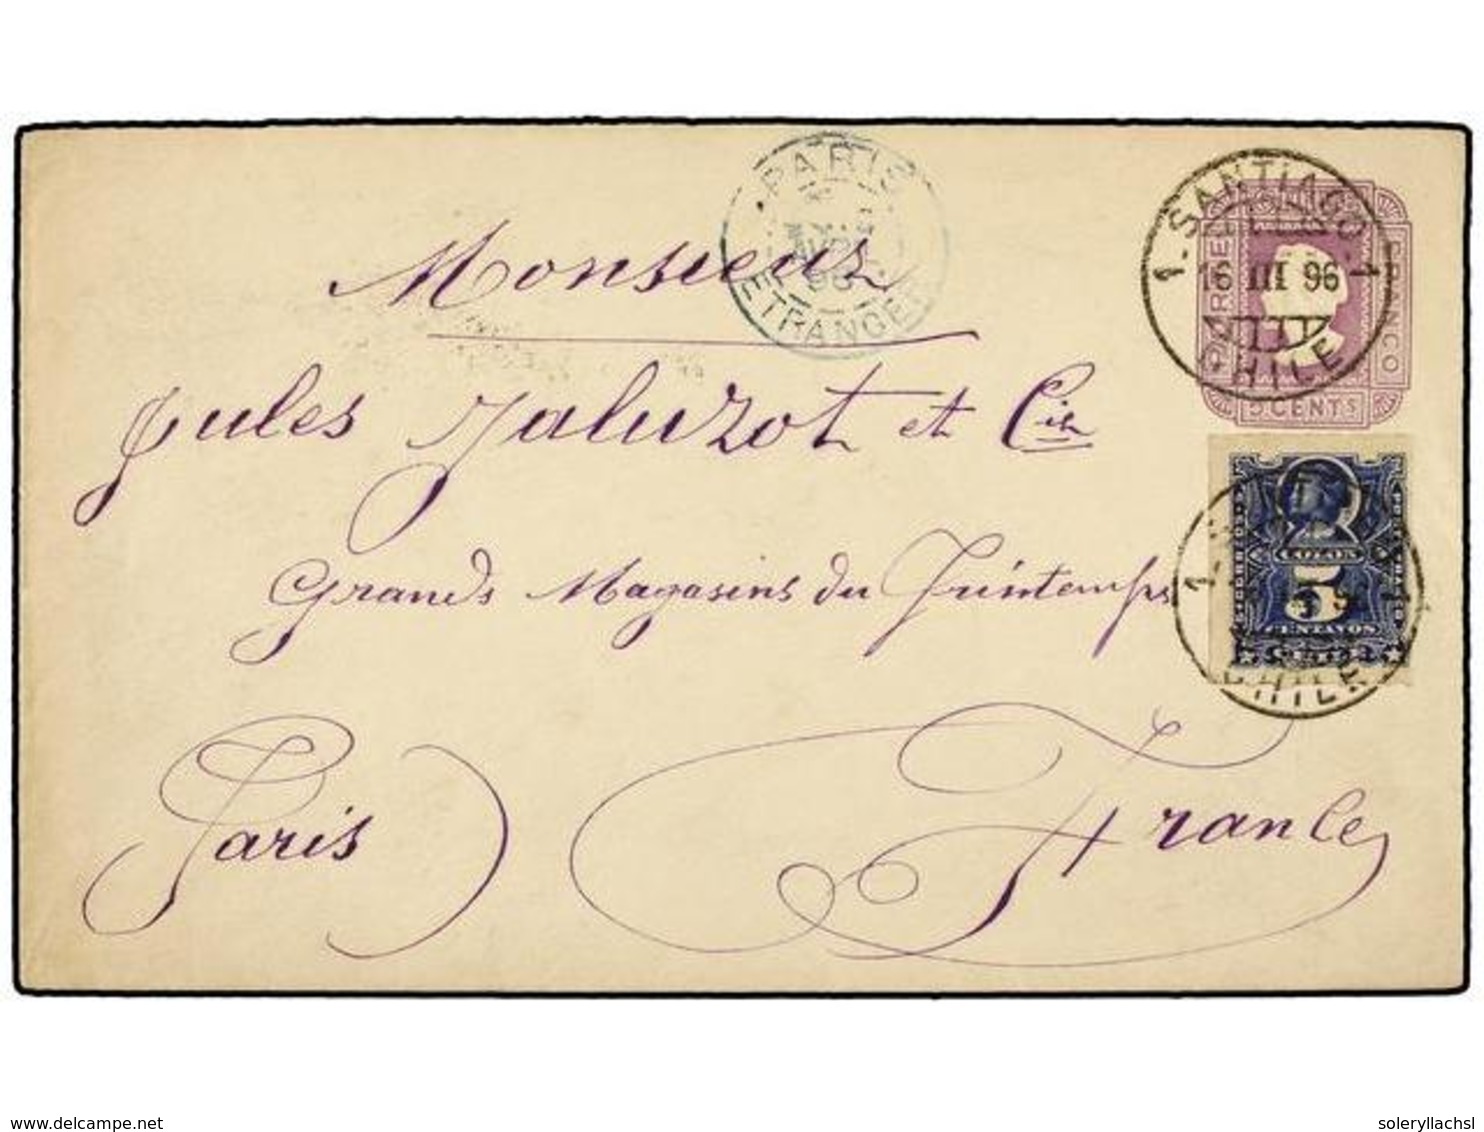 PARIS
AVRIL
96
ETRANGER
1-SANTIAGO-1
16 III 96
CHILE
PORTE FRANCO
5 CENTS
Monsieur
Jules Jaluzot et Cie
Grands Magasins du Printemps
Paris France
COLON
5
CENTAVOS
CHILE
delcampe.net
soleryllachsl